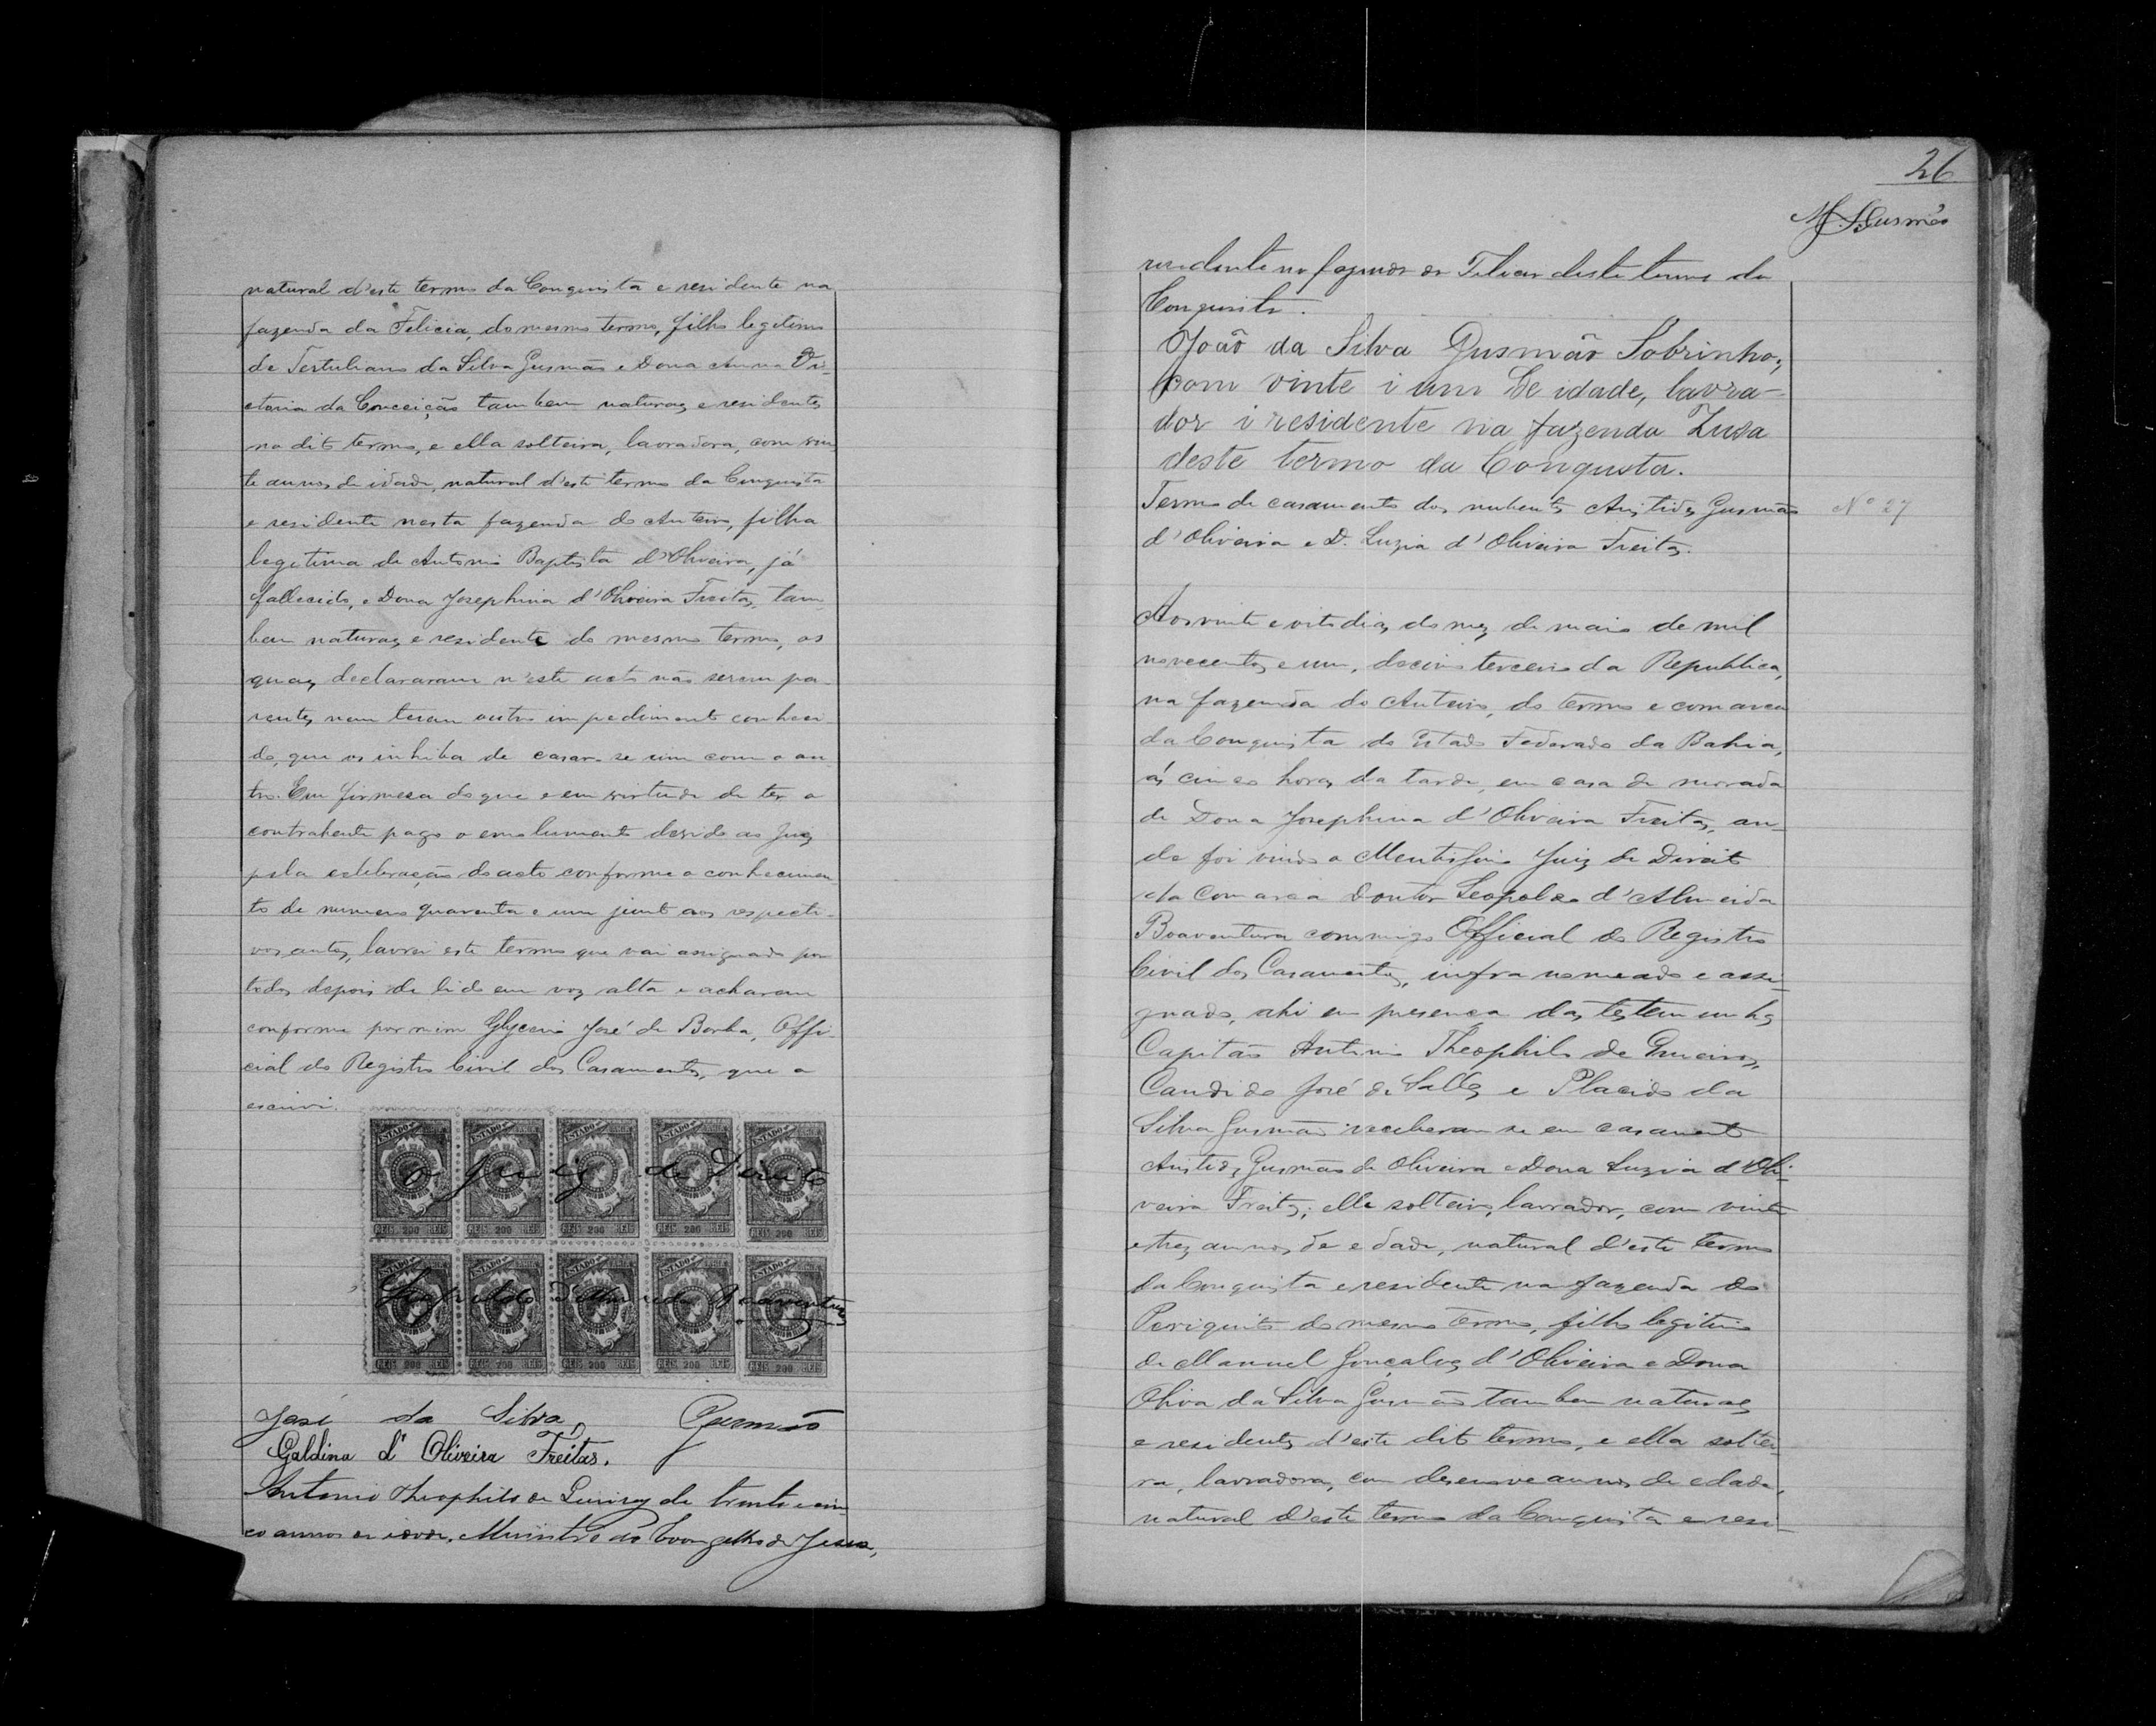 natural d'este termo da Conquista e residente na
fazenda da Felicia, do mesmo termo, filho legitimo
de Tertuliano da Silva Gusmão e Dona Anna Vi-
ctoria da Conceição tambem naturaes e residentes
no dito termo, e ella solteira, lavradora, com vin
te annos de idade, natural d'este termo da Conquista
e residente nesta fazenda do Anteiro, filha
legitima de Antonio Baptista d'Oliveira, já
fallecido, e Dona Josephina d'Oliveira Freitas, tam
bem naturaes e residente do mesmo termo, os
quaes declararam n'este acto não serem pa-
rentes nem terem outro impedimento conheci
do, que os inhiba de casar-se um com o ou
tro. Em firmesa do que e em virtude de ter o
contrahente pago o emolumento devido ao Juiz
pela celebração do acto conforme o conhecimen
to de numero quarenta e um junto aos respecti-
vos autos, lavrei este termo que vai assignado por
todos depois de lido em voz alta e acharem
conforme por mim Glycerio José de Borba, Offi-
cial do Registro Civil dos Casamentos, que o
escrivi.
o Juiz de Direito
Leopoldo d'Almeida Boaventura
ESTADO DA BAHIA
REIS 200 REIS
José da Silva Gusmão
Galdina d' Oliveira Freitas.
Antonio Theophilo de Queiroz de trinta e cin-
co annos de idade, Ministro do Evangelho de Jesus,
26
M. S. Gusmão
residente na fazenda da Felicia deste termo da
Conquista.
João da Silva Gusmão Sobrinho,
com vinte i um de idade, lavra-
dor i residente na fazenda
deste termo da Conquista.
Termo de casamento dos nubentes Aristides Gusmão
Nº 27
d'Oliveira e D. Luzia d'Oliveira Freitas.
Aos vinte e oito dias do mez de maio de mil
novecentos e um, decimo terceiro da Republica,
na fazenda do Anteiro, do termo e comarca
da Conquista do Estado Federado da Bahia,
ás cinco horas da tarde, em casa de morada
de Dona Josephina d'Oliveira Freitas, on-
de foi vindo o Meritissimo Juiz de Direito
da Comarca Doutor Leopoldo d'Almeida
Boaventura commigo Official do Registro
Civil dos Casamentos, infra nomeado e assi-
gnado, ahi em presença das testemunhas
Capitão Antonio Theophilo de Queiroz,
Candido José de Salles e Placido da
Silva Gusmão receberam se em casamento
Aristides Gusmão de Oliveira e Dona Luzia d'Oli-
veira Freitas; elle solteiro, lavrador, com vinte
e trez annos de edade, natural d'este termo
da Conquista e residente na fazenda do
Periquito do mesmo termo, filho legitimo
de Manuel Gonçalves d'Oliveira e Dona
Oliva da Silva Gusmão tambem naturaes
e residentes d'este dito termo, e ella soltei
ra, lavradora, com desenove annos de edade,
natural d'este termo da Conquista e resi-